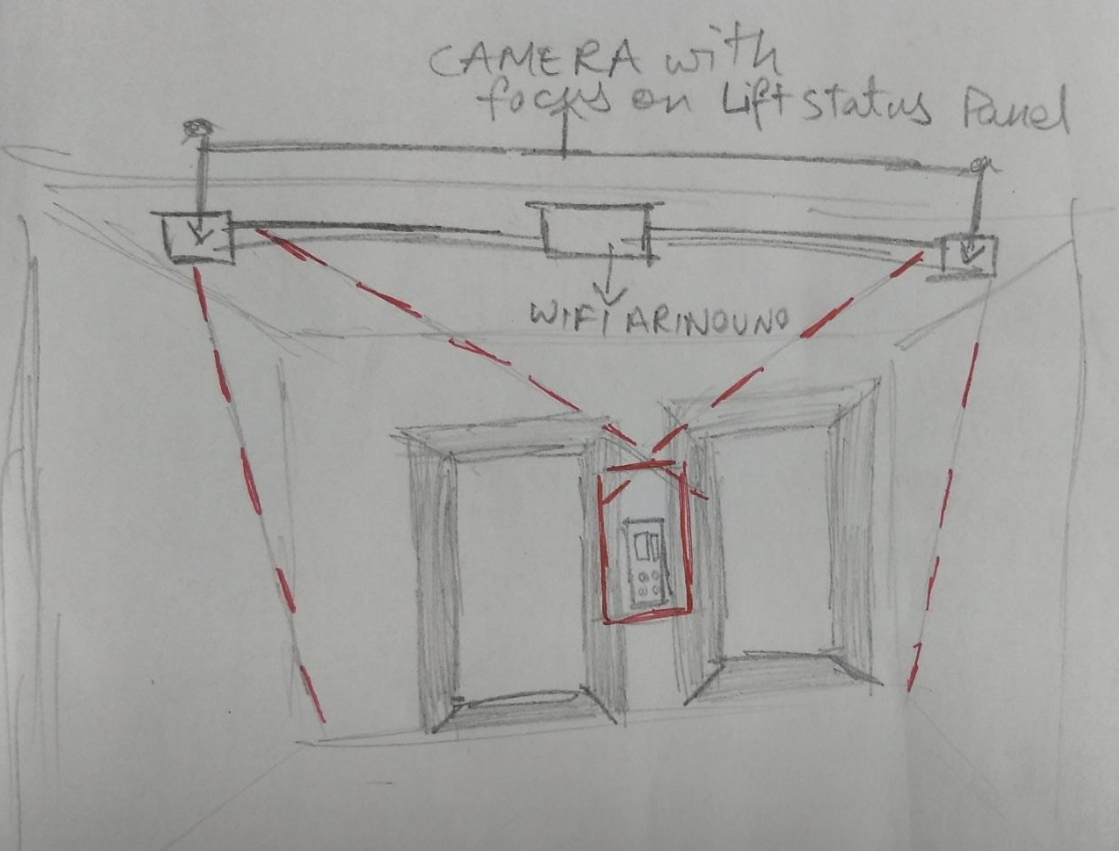 CAMERA with
focus on Lift status Panel
WIFI ARINOUNO